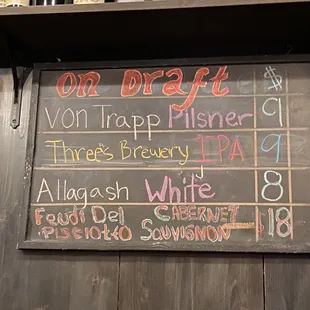 On Draft $
Von Trapp Pilsner 9
Three's Brewery IPA 9
Allagash White 8
Feudi Del Cabernet $18
Pisciotto Sauvignon